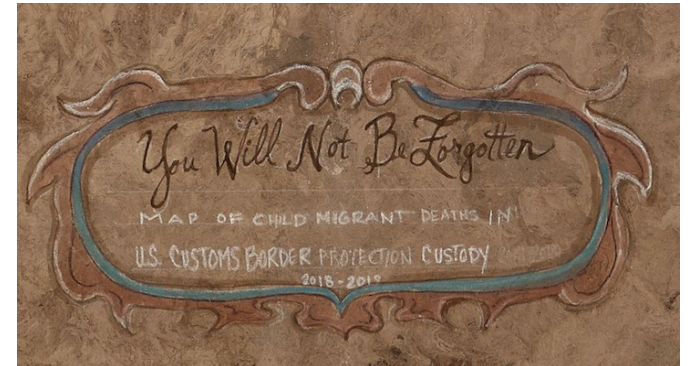 You Will Not Be Forgotten
MAP OF CHILD MIGRANT DEATHS IN
U.S. CUSTOMS BORDER PROTECTION CUSTODY
2018-2019